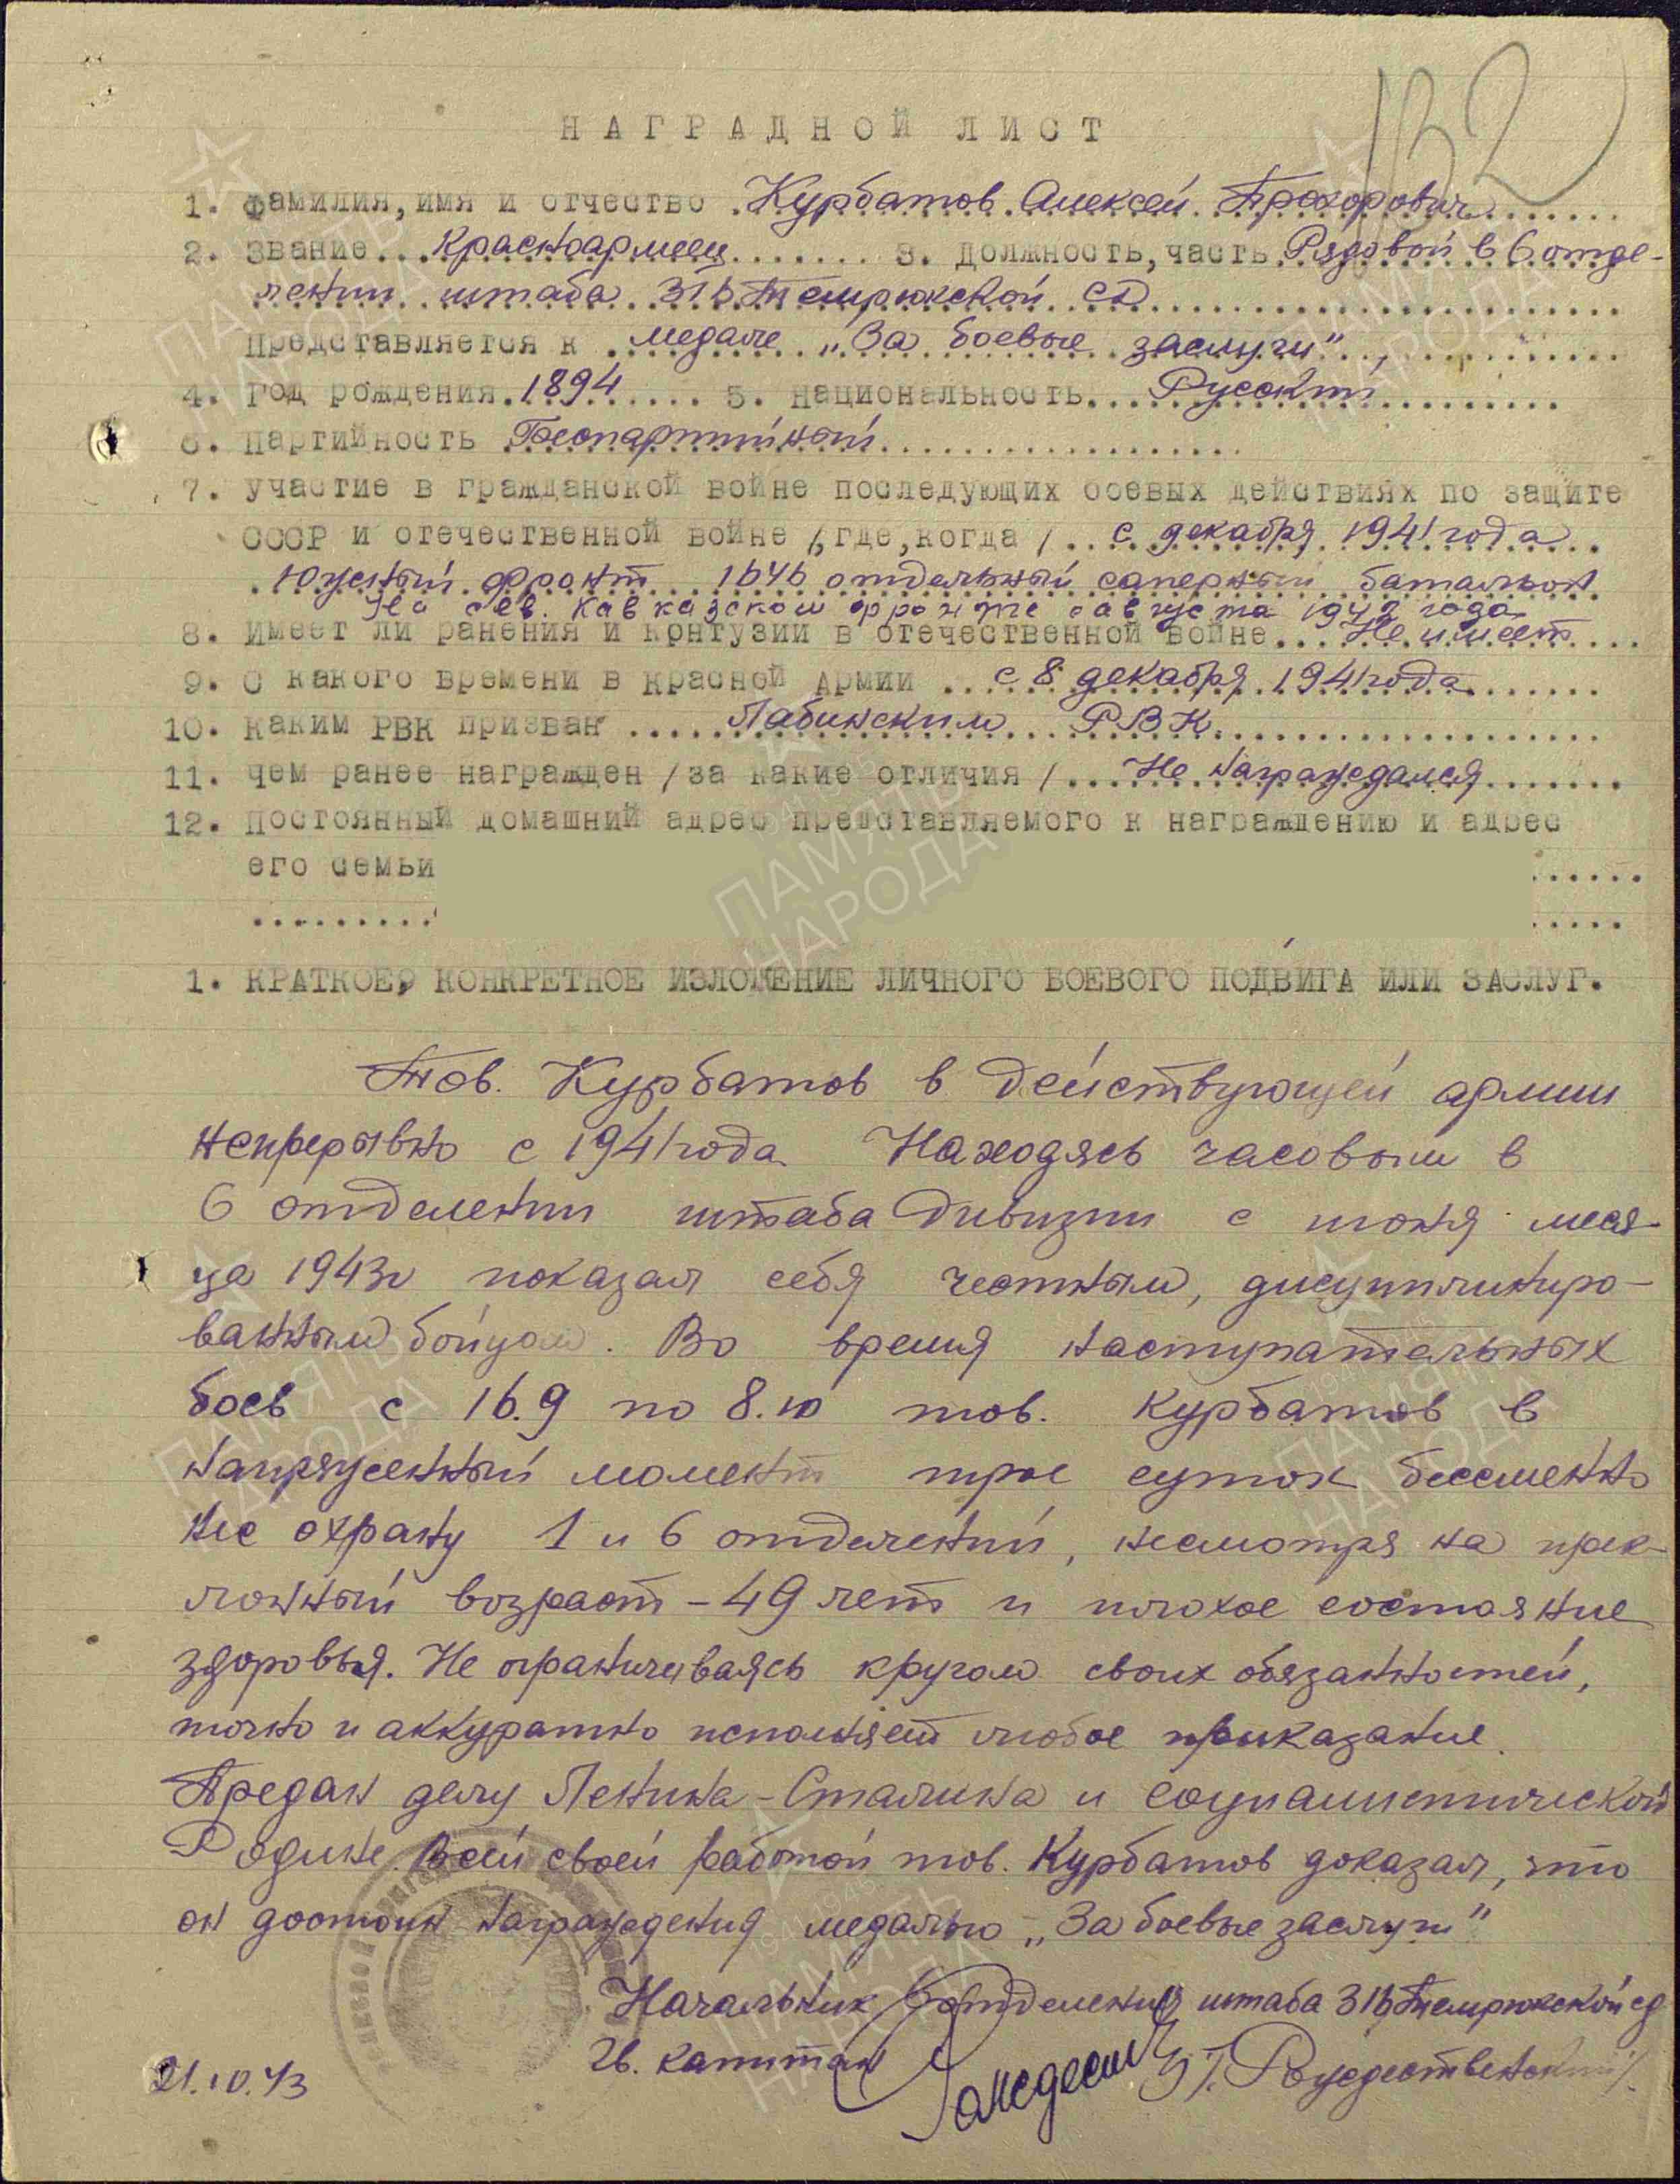 132
НАГРАДНОЙ ЛИСТ
1. Фамилия, имя и отчество Курбатов Алексей Прохорович
2. Звание Красноармеец 3. Должность, часть Рядовой в 6 отде-
лении штаба 316 Темрюкской СД
Представляется к медале „За боевые заслуги"
4. Год рождения 1894 5. Национальность Русский
6. Партийность Беспартийный
7. Участие в гражданской войне последующих боевых действиях по защите
СССР и отечественной войне /где, когда/ с декабря 1941 года
Южный фронт 1646 отдельный саперный батальон
На сев. Кавказском фронте с августа 1942 года
8. Имеет ли ранения и контузии в отечественной войне Не имеет
9. С какого времени в Красной Армии с 8 декабря 1941 года
10. Каким РВК призван Лабинским РВК
11. Чем ранее награжден /за какие отличия/ Не награждался
12. Постоянный домашний адрес представляемого к награждению и адрес
его семьи
1. КРАТКОЕ, КОНКРЕТНОЕ ИЗЛОЖЕНИЕ ЛИЧНОГО БОЕВОГО ПОДВИГА ИЛИ ЗАСЛУГ.
Тов. Курбатов в действующей армии
непрерывно с 1941 года. Находясь часовым в
6 отделении штаба дивизии с июня меся-
ца 1943г показал себя честным, дисциплиниро-
ванным бойцом. Во время наступательных
боев с 16.9 по 8.10 тов. Курбатов в
напряженный момент трое суток бессменно
нес охрану 1 и 6 отделений, несмотря на прек-
лонный возраст - 49 лет и плохое состояние
здоровья. Не ограничиваясь кругом своих обязанностей,
точно и аккуратно исполняет любое приказание.
Предан делу Ленина - Сталина и социалистической
Родине. Всей своей работой тов. Курбатов доказал, что
он достоин награждения медалью „За боевые заслуги"
Начальник 6 отделения штаба 316 Темрюкской сд
Гв. капитан /Рождественский/
21.10.43
ПАМЯТЬ НАРОДА